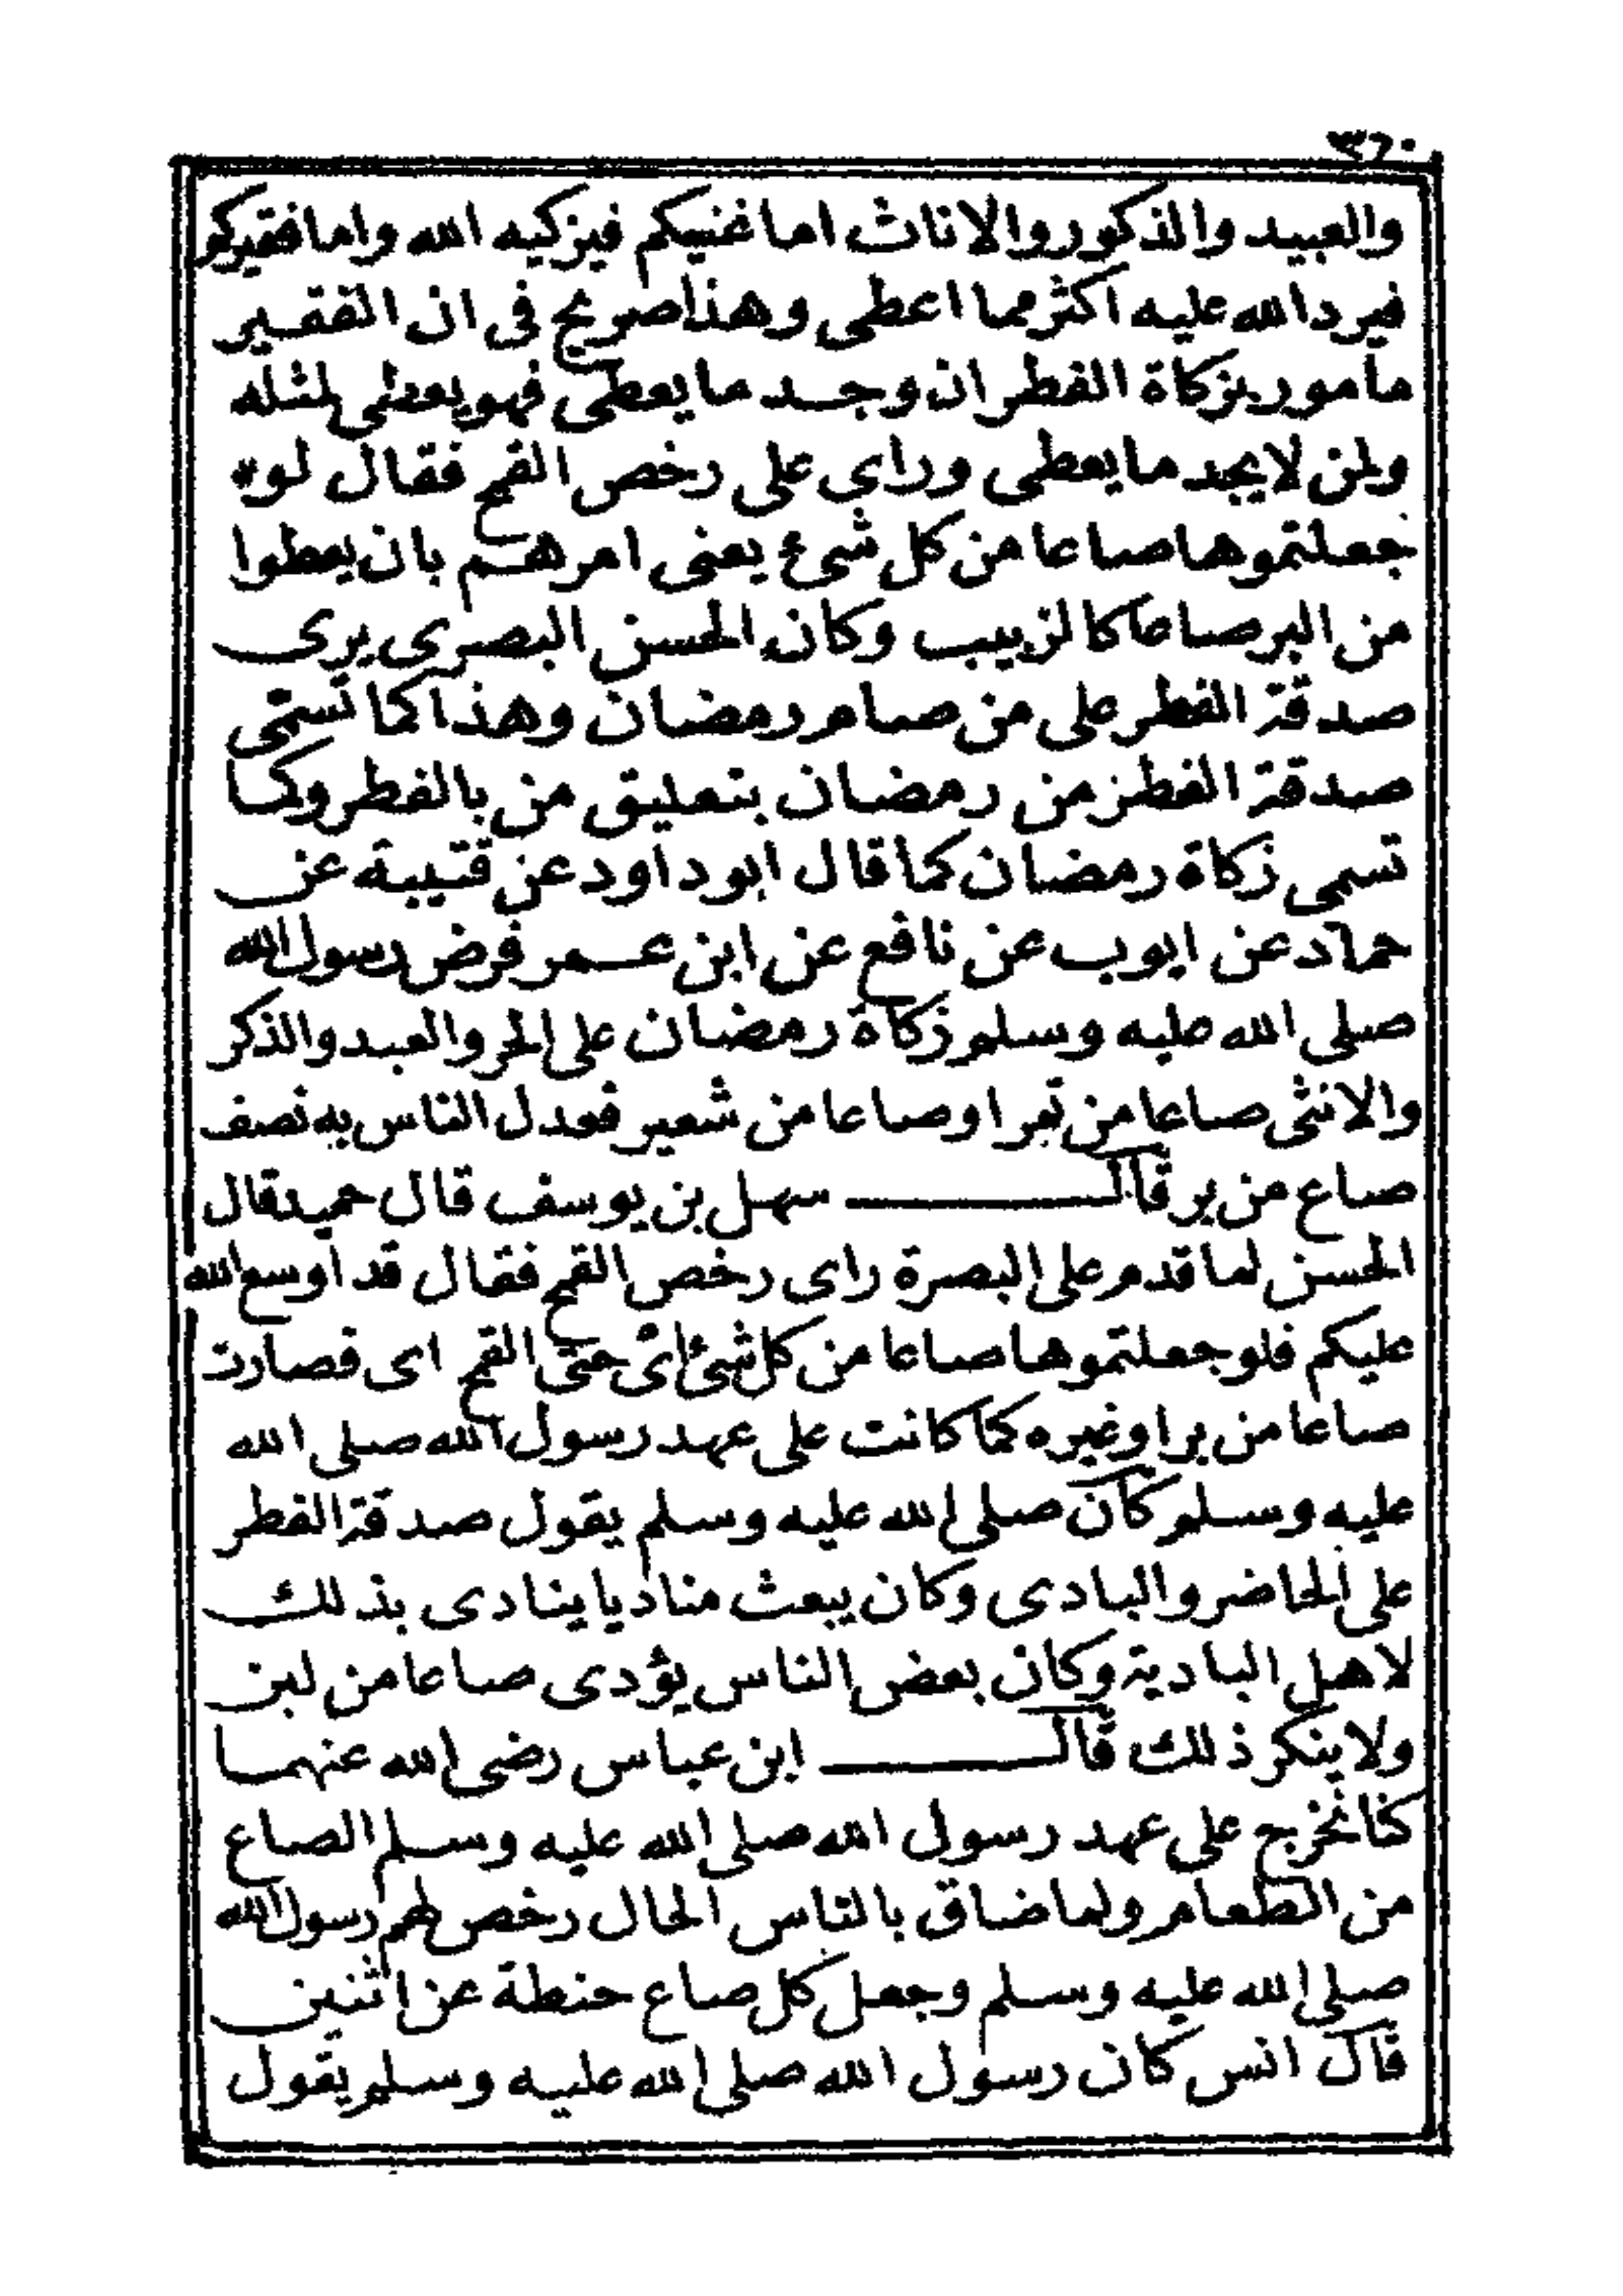 ٣٦٠
والعبيد والذكور والاناث اما غنيكم فيزكيه الله واما فقيركم
فيرد الله عليه اكثر مما اعطى وهذا صريح فى ان الفقير
مأمور بزكاة الفطر ان وجد ما يعطى فهو يعطى لمثله
ولمن لا يجد ما يعطى وراى على رخص القمح فقال لو
جعلتموها صاعا من كل شىء يعنى امرهم بان يعطوا
من البر صاعا كالزبيب وكان الحسن البصرى يرى
صدقة الفطر على من صام رمضان وهذا كما تسمى
صدقة الفطر من رمضان بتعليق من بالفطر وكما
تسمى زكاة رمضان كما قال ابو داود عن قتيبة عن
حماد عن ايوب عن نافع عن ابن عمر فرض رسول الله
صلى الله عليه وسلم زكاة رمضان على الحر والعبد والذكر
والانثى صاعا من تمر او صاعا من شعير فعدل الناس به نصف
صاع من بر قال سهل بن يوسف قال حميد قال
الحسن لما قدم على البصرة راى رخص القمح فقال قد اوسع الله
عليكم فلو جعلتموها صاعا من كل شىء اى حتى القمح اى فصارت
صاعا من بر او غيره كما كانت على عهد رسول الله صلى الله
عليه وسلم كان صلى الله عليه وسلم يقول صدقة الفطر
على الحاضر والبادى وكان يبعث مناديا ينادى بذلك
لاهل البادية وكان بعض الناس يؤدى صاعا من لبن
ولا ينكر ذلك قال ابن عباس رضى الله عنهما
كنا نخرج على عهد رسول الله صلى الله عليه وسلم الصاع
من الطعام ولما ضاق بالناس الحال رخص لهم رسول الله
صلى الله عليه وسلم وجعل كل صاع حنطة عن اثنين
قال انس كان رسول الله صلى الله عليه وسلم يقول